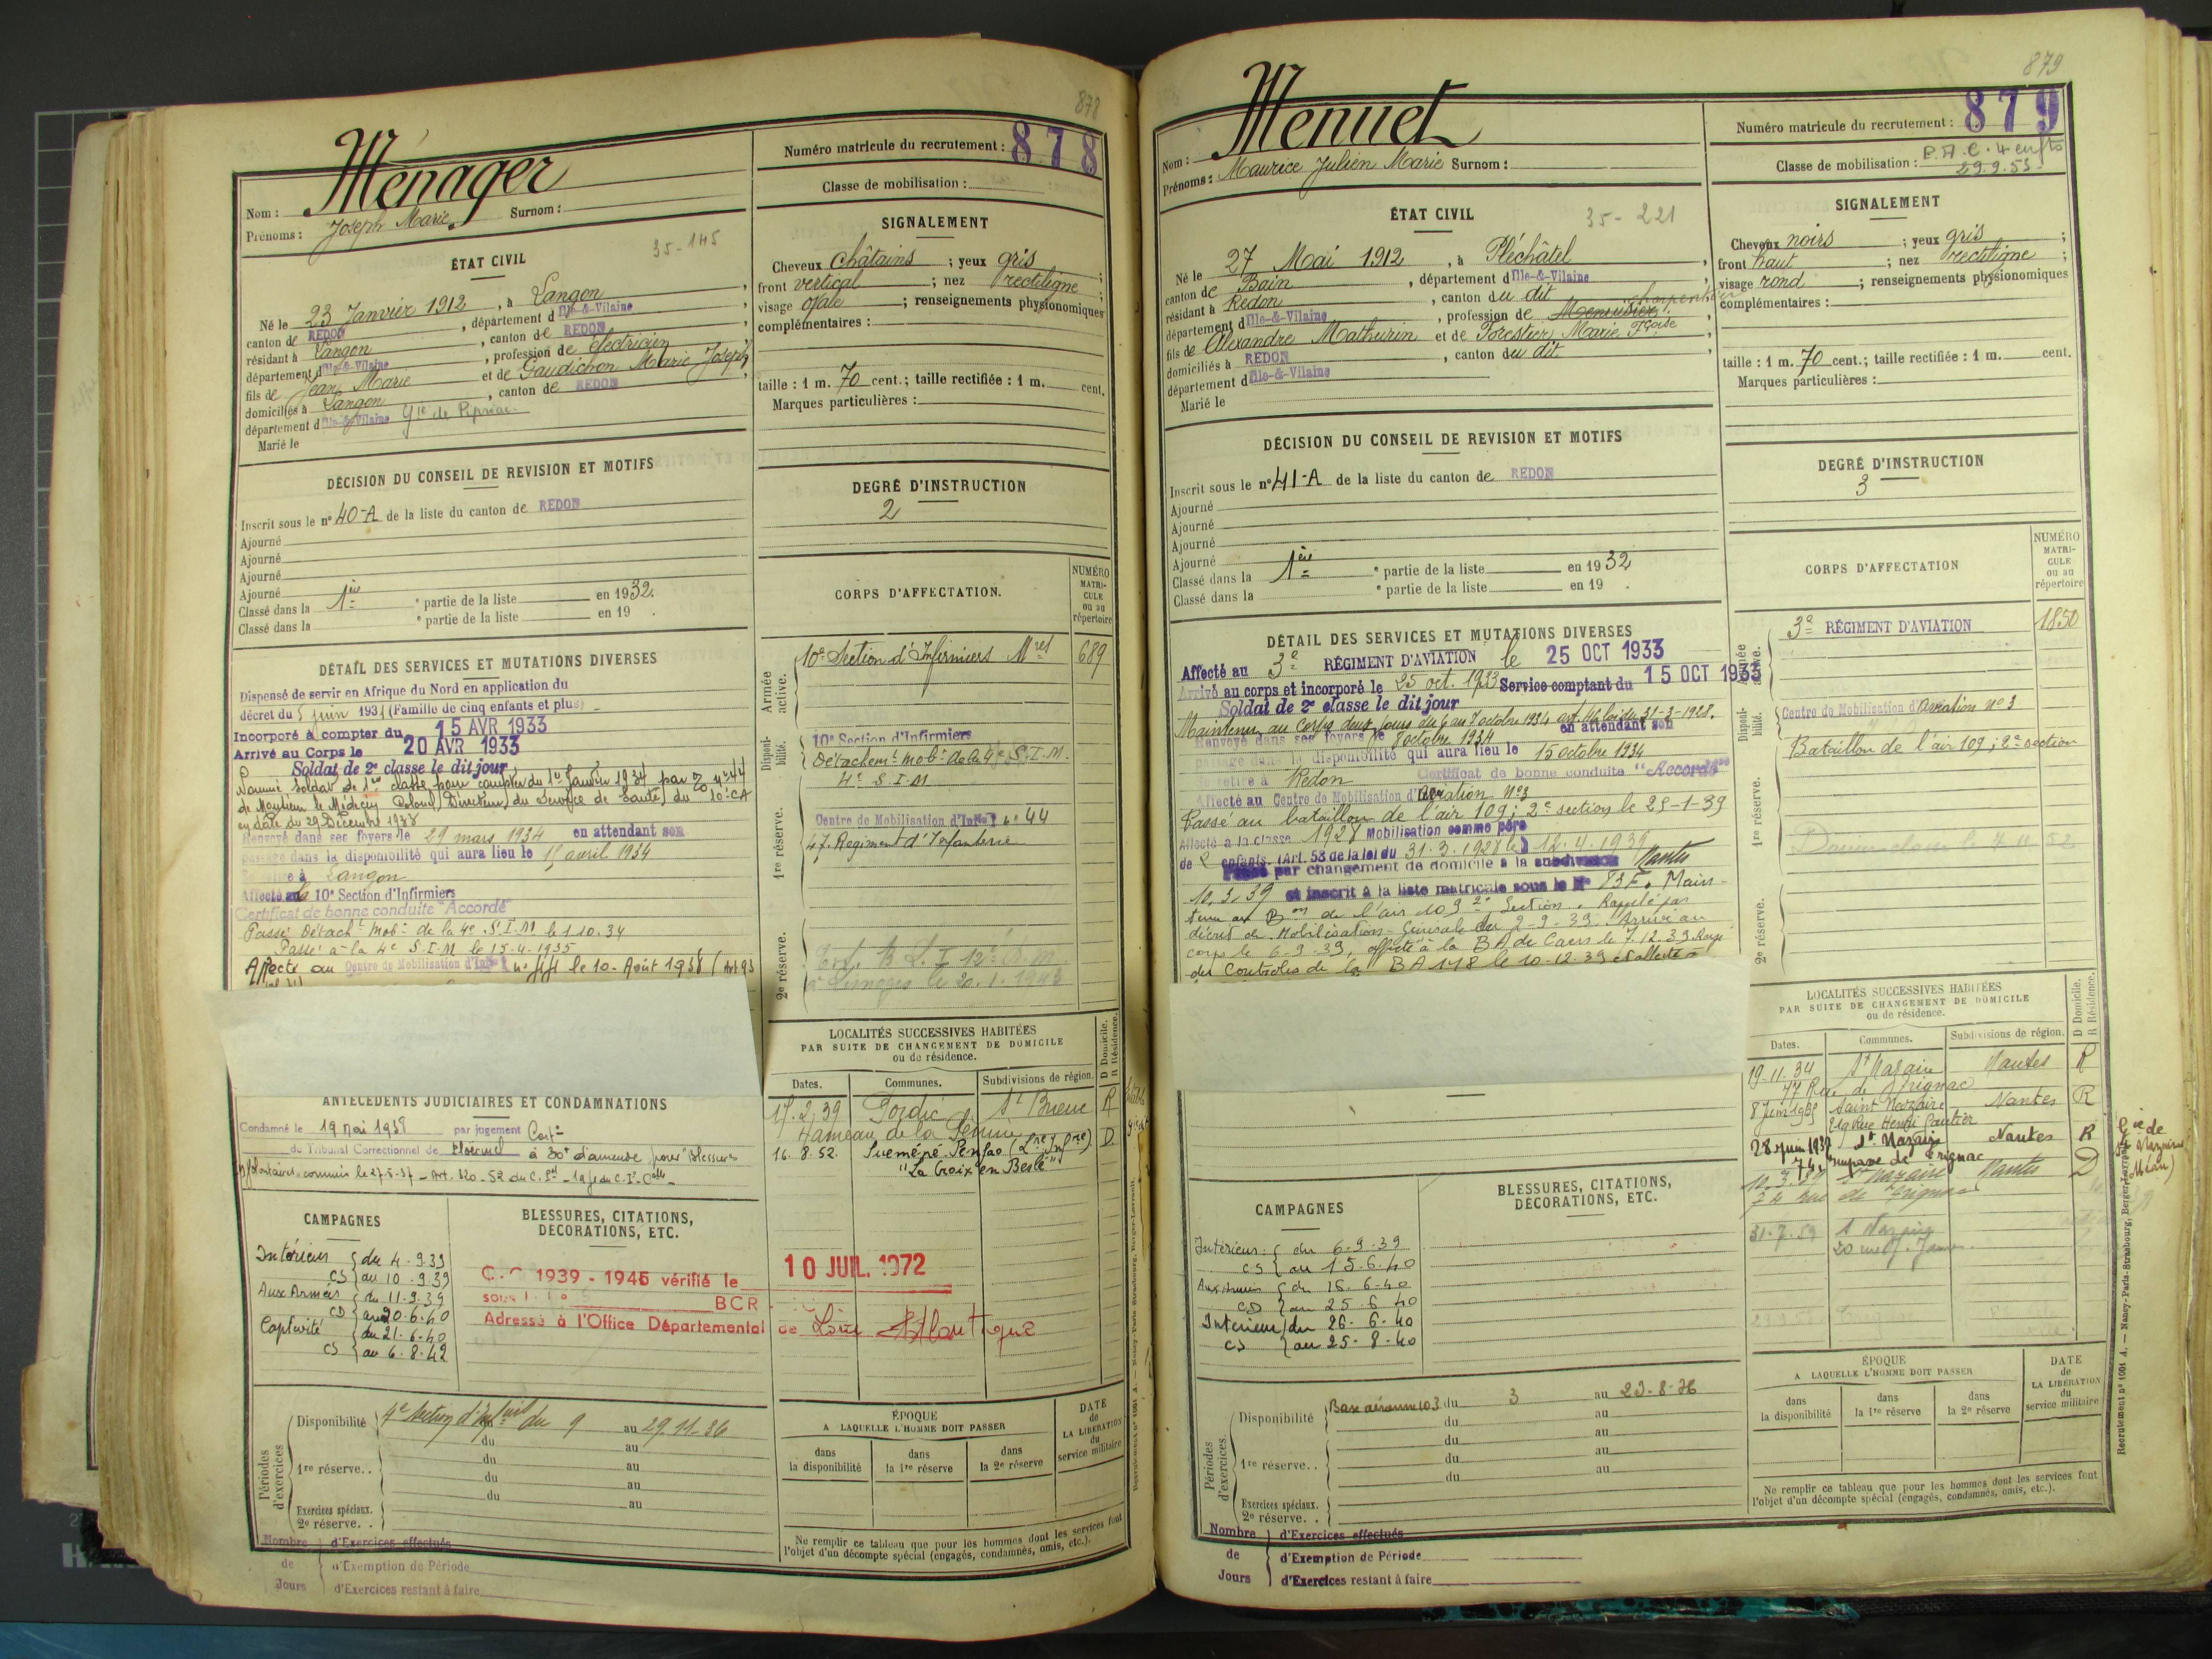 878
Ménager
Nom :
Prénoms : Joseph Marie. Surnom :
Numéro matricule du recrutement : 878
Classe de mobilisation :
ÉTAT CIVIL
35-145
Né le 23 Janvier 1912, à Langon,
canton de REDON, département d'Ille-&-Vilaine
résidant à Langon, canton de REDON,
département d'Ille-&-Vilaine, profession de électricien
fils de Jean Marie et de Gaudichon Marie Joseph,
domiciliés à Langon, canton de REDON
département d'Ille-&-Vilaine Gie de Pipriac
Marié le
SIGNALEMENT
Cheveux châtains ; yeux gris ;
front vertical ; nez rectiligne ;
visage ovale ; renseignements physionomiques
complémentaires :
taille : 1 m. 70 cent.; taille rectifiée : 1 m. cent.
Marques particulières :
DÉCISION DU CONSEIL DE REVISION ET MOTIFS
Inscrit sous le nº 40-A de la liste du canton de REDON
Ajourné
Ajourné
Ajourné
Ajourné
Classé dans la 1ère e partie de la liste en 1932.
Classé dans la e partie de la liste en 19 .
DEGRÉ D'INSTRUCTION
2
DÉTAIL DES SERVICES ET MUTATIONS DIVERSES
Dispensé de servir en Afrique du Nord en application du
décret du 5 juin 1931 (Famille de cinq enfants et plus)
Incorporé à compter du 15 AVR 1933
Arrivé au Corps le 20 AVR 1933
Soldat de 2e classe le dit jour
Nommé soldat de 1ère classe pour compter du 1er Janvier 1934 par nº 44
de Monsieur le Médecin Colonel, Directeur du Service de Santé du 10e CA
en date du 29 Décembre 1933
Renvoyé dans ses foyers le 29 mars 1934 en attendant son
passage dans la disponibilité qui aura lieu le 15 avril 1934
Se retire à Langon
Affecté à la 10e Section d'Infirmiers
Certificat de bonne conduite "Accordé"
Passé Détacht Mobe de la 4e S.I.M le 1.10.34
Passé à la 4e S.I.M. le 15-4-1935
Affecté au Centre de Mobilisation d'Infie nº 44 le 10-Août 1938 (Art 93
CORPS D'AFFECTATION.
NUMÉRO MATRICULE ou au répertoire
Armée active.
10e Section d'Infirmiers Mres 689
Disponibilité.
10e Section d'Infirmiers
Détachemt Mobe de la 4e S.I.M.
4e S.I.M
1re réserve.
Centre de Mobilisation d'Infie nº 44
47. Régiment d'Infanterie
2e réserve.
à Limoges le 20.1.1943
ANTÉCÉDENTS JUDICIAIRES ET CONDAMNATIONS
Condamné le 19 Mai 1938 par jugement Cont=
du Tribunal Correctionnel de Ploërmel à 30f d'amende pour "Blessures
involontaires" commis le 27-5-37 - Art. 320-52 du C. Pal
LOCALITÉS SUCCESSIVES HABITÉES
PAR SUITE DE CHANGEMENT DE DOMICILE
ou de résidence.
Dates. Communes. Subdivisions de région. D Domicile. R Résidence.
17.2.39 Pordic St Brieuc R
Hameau de la
16.8.52. Guémené Penfao (Lre Infre) D
"La Croix en Beslé"
CAMPAGNES
Intérieur { du 4-9-39
CS { au 10-9-39
Aux Armées { du 11-9-39
CD { au 20-6-40
Captivité { du 21-6-40
CS { au 6-8-42
BLESSURES, CITATIONS,
DÉCORATIONS, ETC.
C.C 1939 - 1945 vérifié le 10 JUIL. 1972
sous le nº BCR
Adressé à l'Office Départemental de Loire Atlantique
Périodes d'exercices
Disponibilité 4e Section d'Infirs du 9 au 29.11-36
du au
1re réserve.. du au
du au
du au
Exercices spéciaux.
2e réserve. .
Nombre de Jours
d'Exercices effectués
d'Exemption de Période
d'Exercices restant à faire
ÉPOQUE
A LAQUELLE L'HOMME DOIT PASSER
dans la disponibilité
dans la 1re réserve
dans la 2e réserve
DATE de LA LIBÉRATION du service militaire
Ne remplir ce tableau que pour les hommes dont les services font
l'objet d'un décompte spécial (engagés, condamnés, omis, etc.).
879
Menuet
Nom :
Prénoms : Maurice Julien Marie Surnom :
Numéro matricule du recrutement : 879
P.A.C. 4 enfts
Classe de mobilisation : 29.9.53-
ÉTAT CIVIL
35-221
Né le 27 Mai 1912, à Pléchâtel,
canton de Bain, département d'Ille-&-Vilaine
résidant à Redon, canton du dit
charpentier
département d'Ille-&-Vilaine, profession de Menuisier,
fils de Alexandre Mathurin et de Forestier Marie Fçoise
domiciliés à REDON, canton du dit,
département d'Ille-&-Vilaine
Marié le
SIGNALEMENT
Cheveux noirs ; yeux gris ;
front haut ; nez rectiligne ;
visage rond ; renseignements physionomiques
complémentaires :
taille : 1 m. 70 cent.; taille rectifiée : 1 m. cent.
Marques particulières :
DÉCISION DU CONSEIL DE REVISION ET MOTIFS
Inscrit sous le nº 41-A de la liste du canton de REDON
Ajourné
Ajourné
Ajourné
Ajourné
Classé dans la 1ère e partie de la liste en 1932
Classé dans la e partie de la liste en 19 .
DEGRÉ D'INSTRUCTION
3
DÉTAIL DES SERVICES ET MUTATIONS DIVERSES
Affecté au 3e RÉGIMENT D'AVIATION le 25 OCT 1933
Arrivé au corps et incorporé le 25 oct. 1933 Service comptant du 15 OCT 1933
Soldat de 2e classe le dit jour
Maintenu au Corps deux jours du 6 au 7 octobre 1934 art. 46 loi du 31-3-1928.
Renvoyé dans ses foyers le 8 octobre 1934 en attendant son
passage dans la disponibilité qui aura lieu le 15 octobre 1934
Se retire à Redon Certificat de bonne conduite "Accordé"
Affecté au Centre de Mobilisation d'Aviation Nº3
Passé au bataillon de l'air 109, 2e section le 25-1-39
Affecté à la classe 1928 Mobilisation comme père
de 2 enfants. (Art. 58 de la loi du 31.3.1928 le) 12.4.1939
Passé par changement de domicile à la subdivision Nantes
10.3.39 et inscrit à la liste matricule sous le Nº 83F. Main-
tenu au Bon de l'air 109 2e Section. Rappelé par
décret de Mobilisation Générale du 2-9-39. Arrivé au
corps le 6-9-39, affecté à la BA de Caen le 7.12.39. Rayé
des Contrôles de la BA 178 le 10-12-39 et affecté à
CORPS D'AFFECTATION
NUMÉRO MATRICULE ou au répertoire
Armée active.
3e RÉGIMENT D'AVIATION 1850
Disponibilité.
Centre de Mobilisation d'Aviation nº 3
1re réserve.
Bataillon de l'air 109; 2e section
2e réserve.
LOCALITÉS SUCCESSIVES HABITÉES
PAR SUITE DE CHANGEMENT DE DOMICILE
ou de résidence.
Dates. Communes. Subdivisions de région. D Domicile. R Résidence.
19-11.34 St Nazaire Nantes R
77 Rue de Trignac
8 Juin 1935 Saint Nazaire Nantes R
Rue Henri Gautier
28 Juin 1937 St Nazaire Nantes R
74, Impasse de Trignac
10.3.39 St Nazaire Nantes D
74 Rue de Trignac
31-7.59 St Nazaire
Gie de St Nazaire (Méan)
CAMPAGNES
Intérieur : { du 6-9-39
CS { au 15-6-40
Aux Armées { du 16-6-40
CD { au 25-6-40
Intérieur { du 26-6-40
CS { au 25-8-40
BLESSURES, CITATIONS,
DÉCORATIONS, ETC.
Périodes d'exercices.
Disponibilité Base aérienne 103 du 3 au 23-8-36
du au
du au
1re réserve. . du au
du au
Exercices spéciaux.
2e réserve. .
Nombre de Jours
d'Exercices effectués
d'Exemption de Période
d'Exercices restant à faire
ÉPOQUE
A LAQUELLE L'HOMME DOIT PASSER
dans la disponibilité
dans la 1re réserve
dans la 2e réserve
DATE de LA LIBÉRATION du service militaire
Ne remplir ce tableau que pour les hommes dont les services font
l'objet d'un décompte spécial (engagés, condamnés, omis, etc.).
Recrutement nº 1001 A. — Nancy-Paris-Strasbourg, Berger-Levrault.